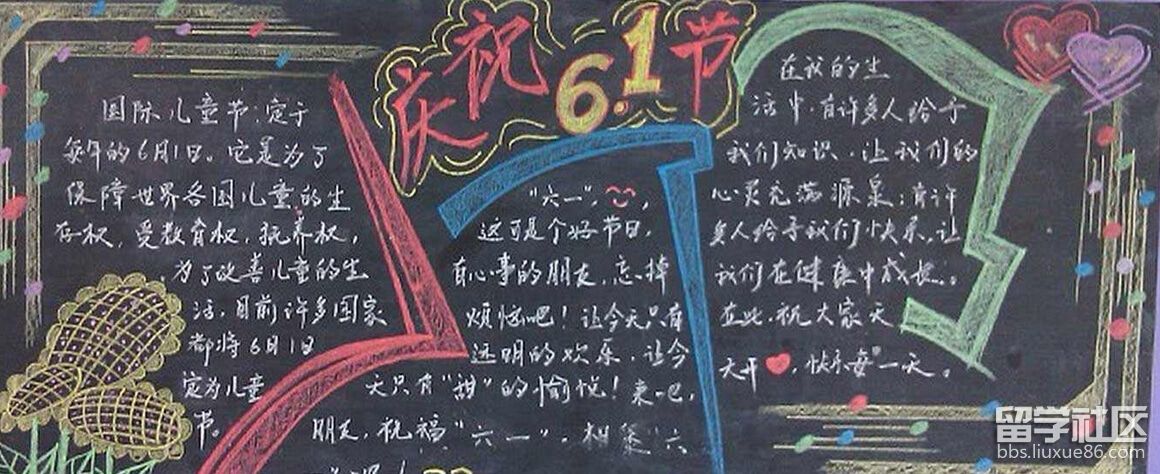 庆祝6.1节
国际儿童节，定于
每年的6月1日。它是为了
保障世界各国儿童的生
存权，受教育权，抚养权，
为了改善儿童的生
活，目前许多国家
都将6月1日
定为儿童
节。
"六一"，
这可是个好节日，
有心事的朋友，忘掉
烦恼吧！让今天只有
透明的欢乐，让今
天只有"甜"的愉悦！来吧，
朋友，祝福"六一"，相聚"六
在我的生
活中，有许多人给予
我们知识，让我们的
心灵充满源泉；有许
多人给予我们快乐，让
我们在健康中成长。
在此，祝大家天
天开，快乐每一天。
留学社区
bbs.liuxue86.com